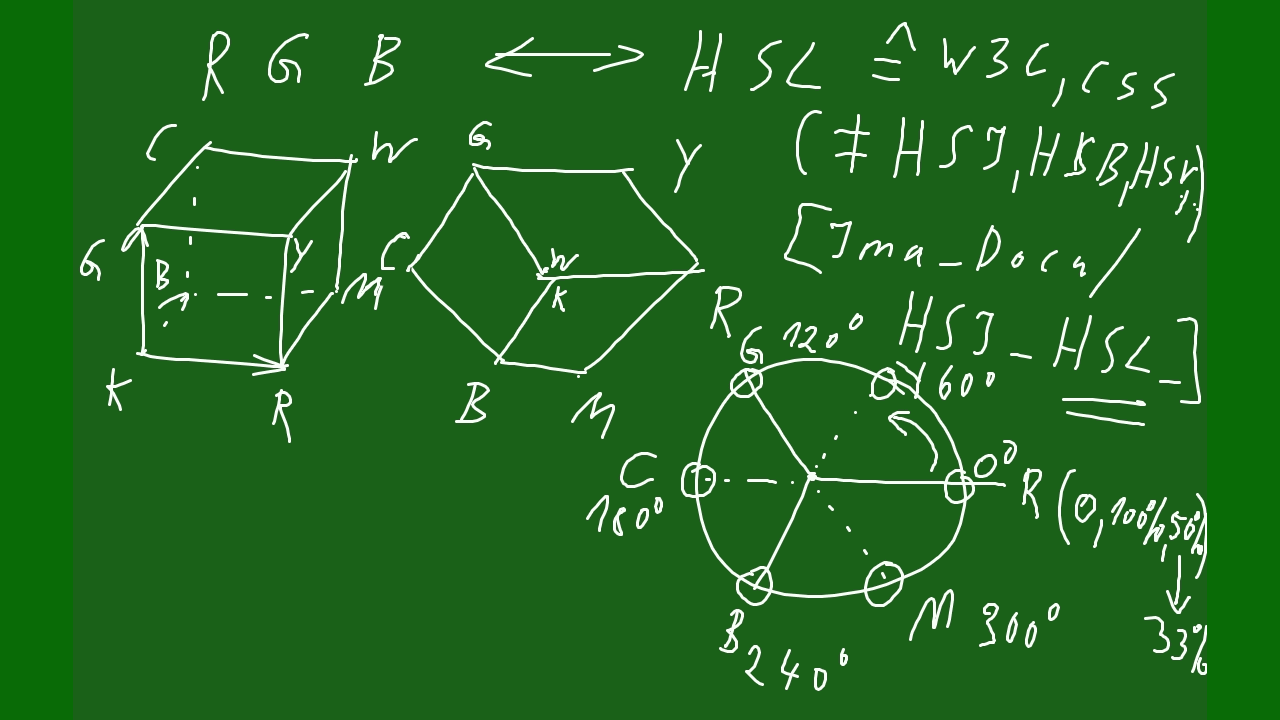 R G B ⟷ HSL ≙ W3C, CSS
(≠ HSI, HSB, HSV, ..)
[Ima_Doca/
HSI_HSL_]
C W
G B Y M
K R
G Y
C W
K R
B M
G 120° Y 60°
C 180° 0° R (0, 100%, 50%)
↓
B 240° M 300° 33%